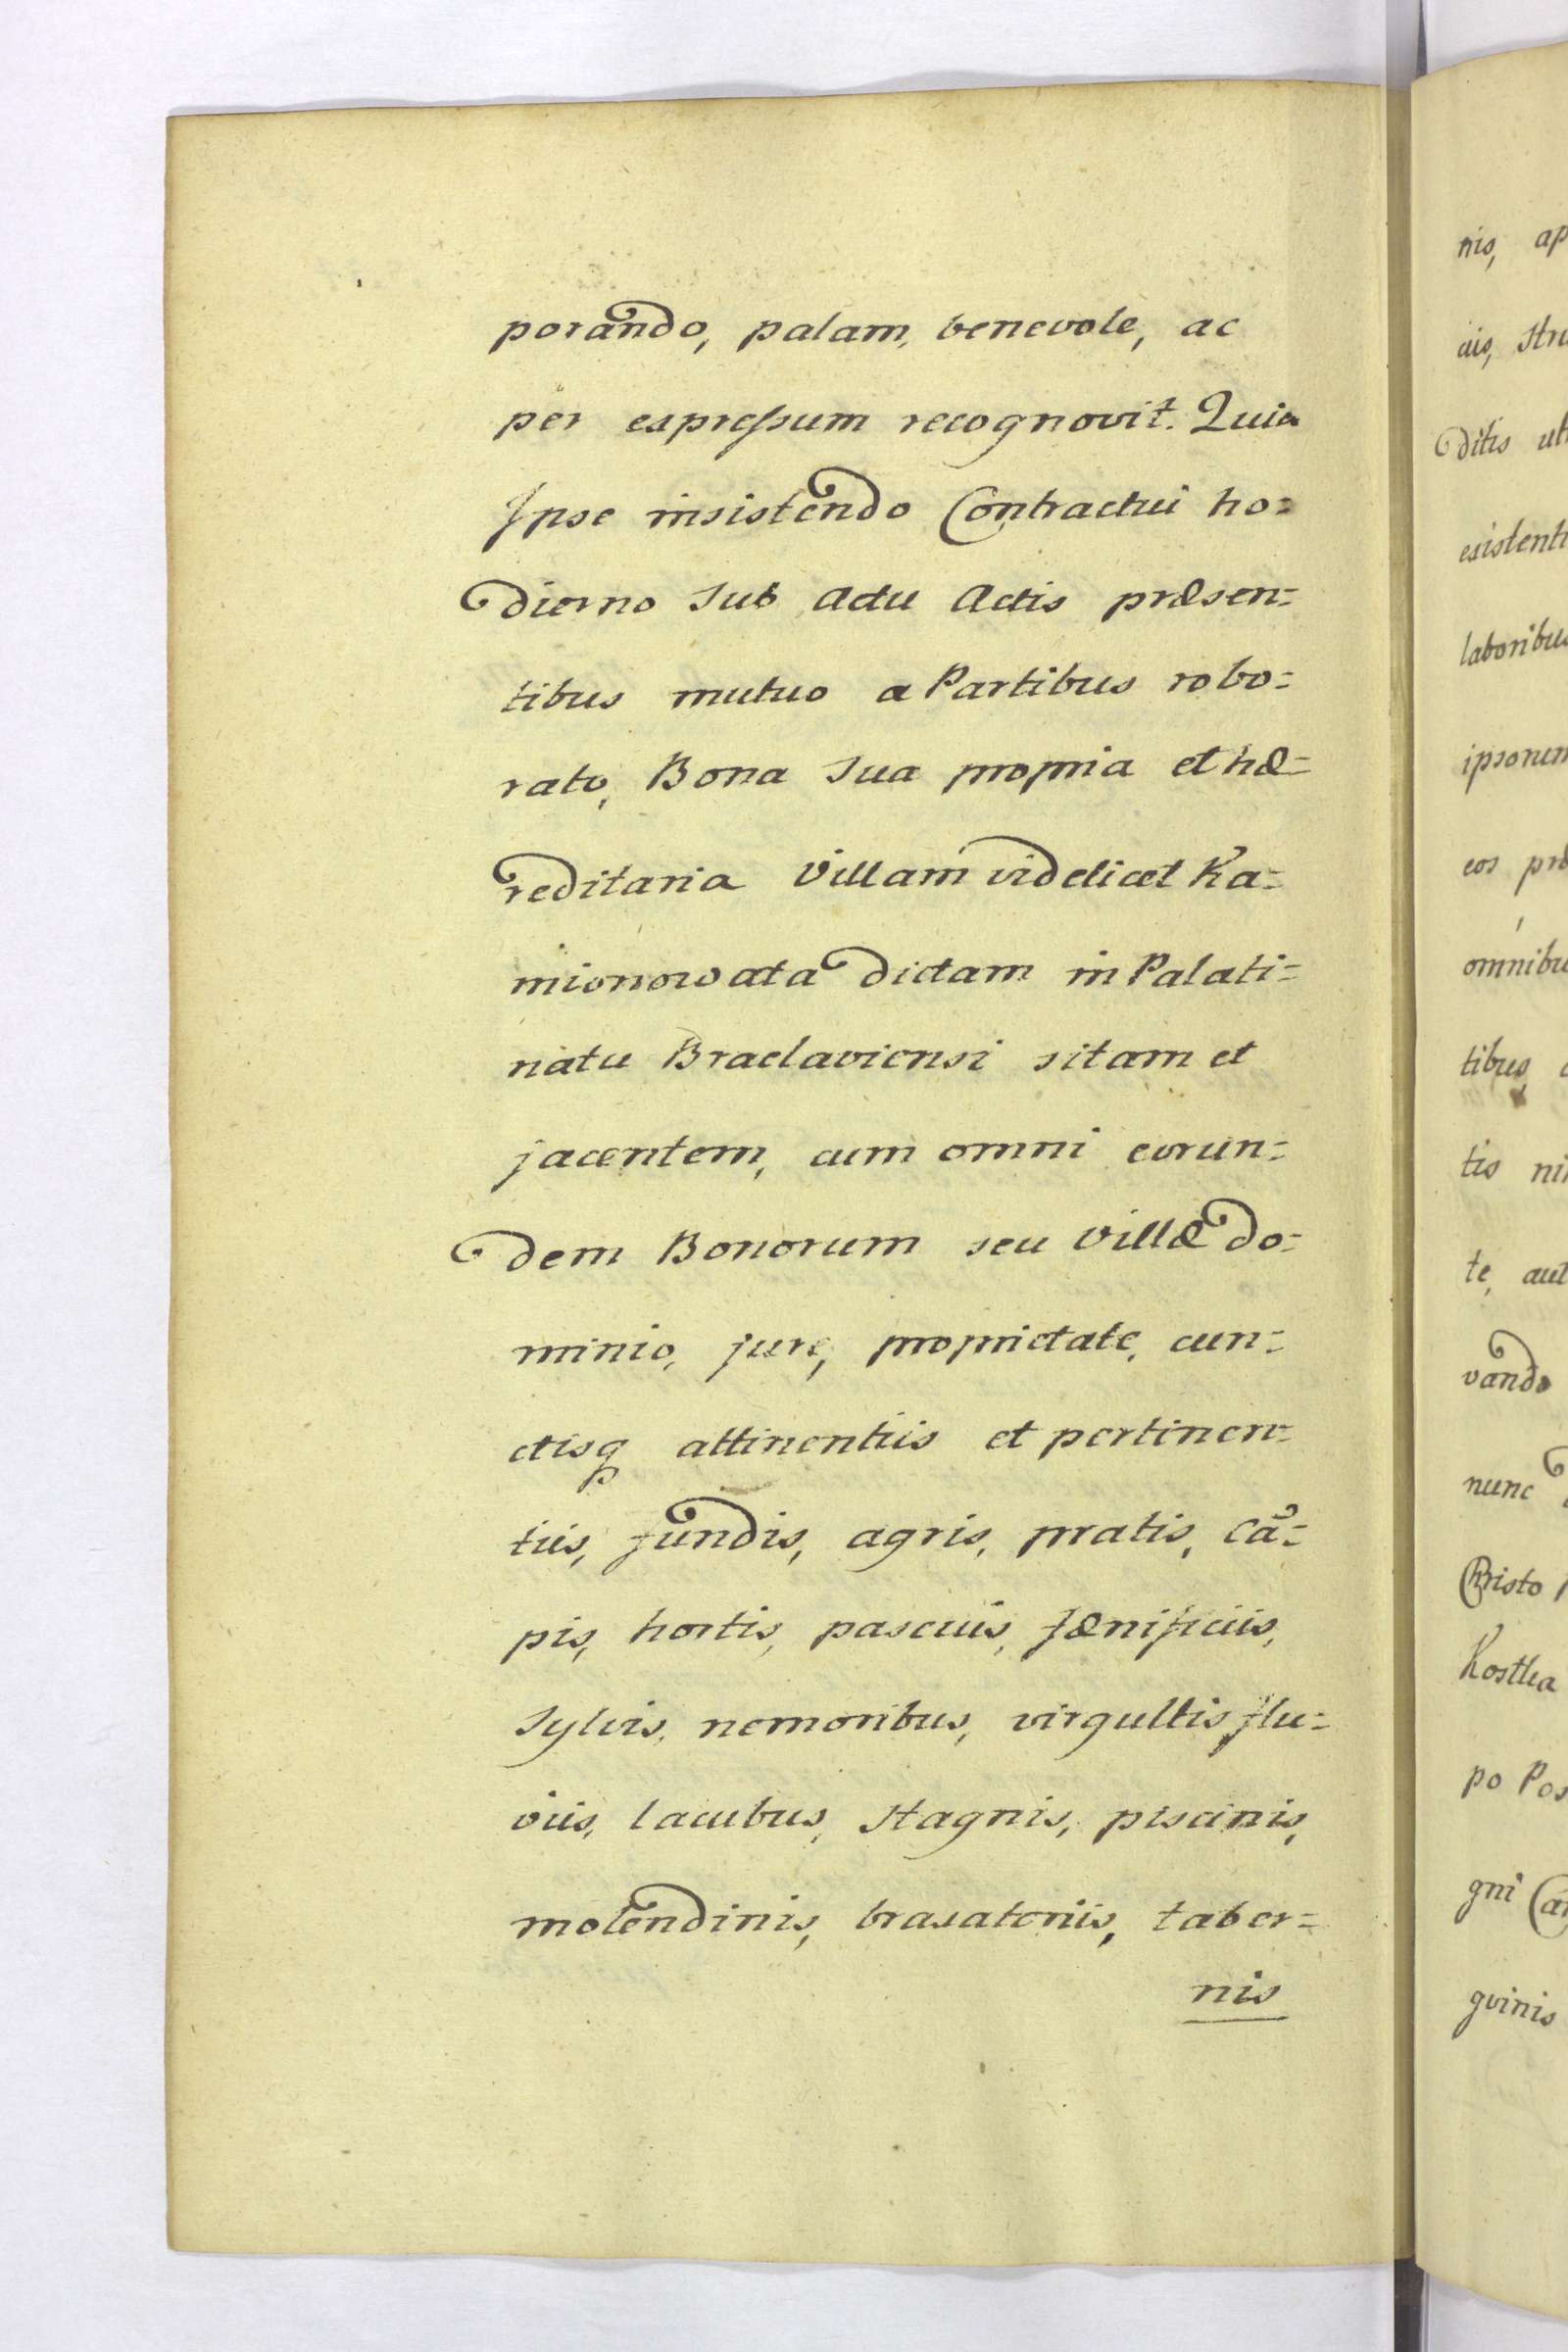 porando, palam, benevole, ac
per expressum recognovit. Quia
Ipse insistendo Contractui ho=
dierno sub Actu Actis præsen=
tibus mutuo a Partibus robo=
rato, Bona sua propria et hæ=
reditaria Villam videlicet Ka=
mionowata dictam in Palati=
natu Braclaviensi sitam et
jacentem, cum omni eorun=
dem Bonorum seu Villæ do=
minio, jure, proprietate, cun=
ctisq attinentiis et pertinen=
tiis, fundis, agris, pratis, cã=
pis, hortis, pascuis, fænificiis,
sylvis, nemoribus, virgultis flu=
viis, lacubus, stagnis, piscinis,
molendinis, braxatoriis, taber=
nis
nis, ap
ditis
existent
laboribus
ipsorum
eos præ
omnibu
tibus
tis
te, aut
vando
nunc
Christo
Kostka
po Pos
gni
gvinis